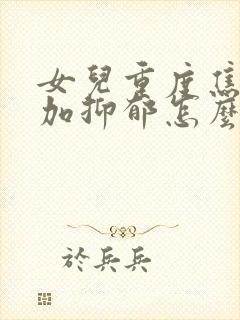 女兒重度焦
加抑郁怎麼
於兵兵